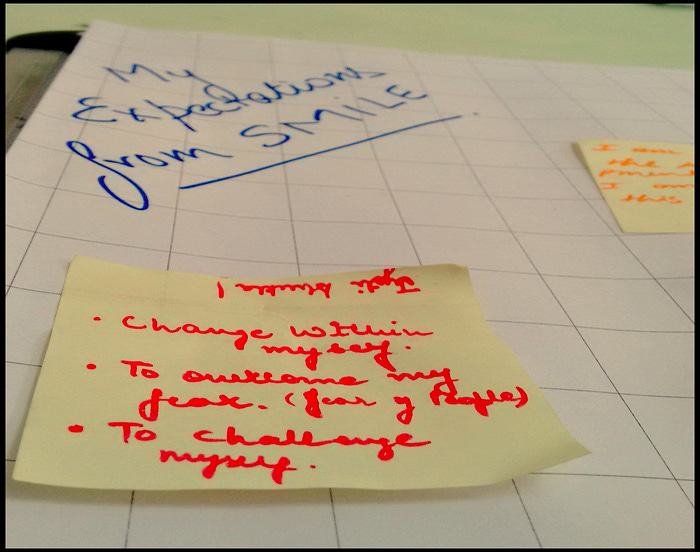 My
Expectations
from SMILE
I am
the
I am
this
• Change Within
myself.
• To overcome my
fear. (fear of People)
• To challenge
myself.